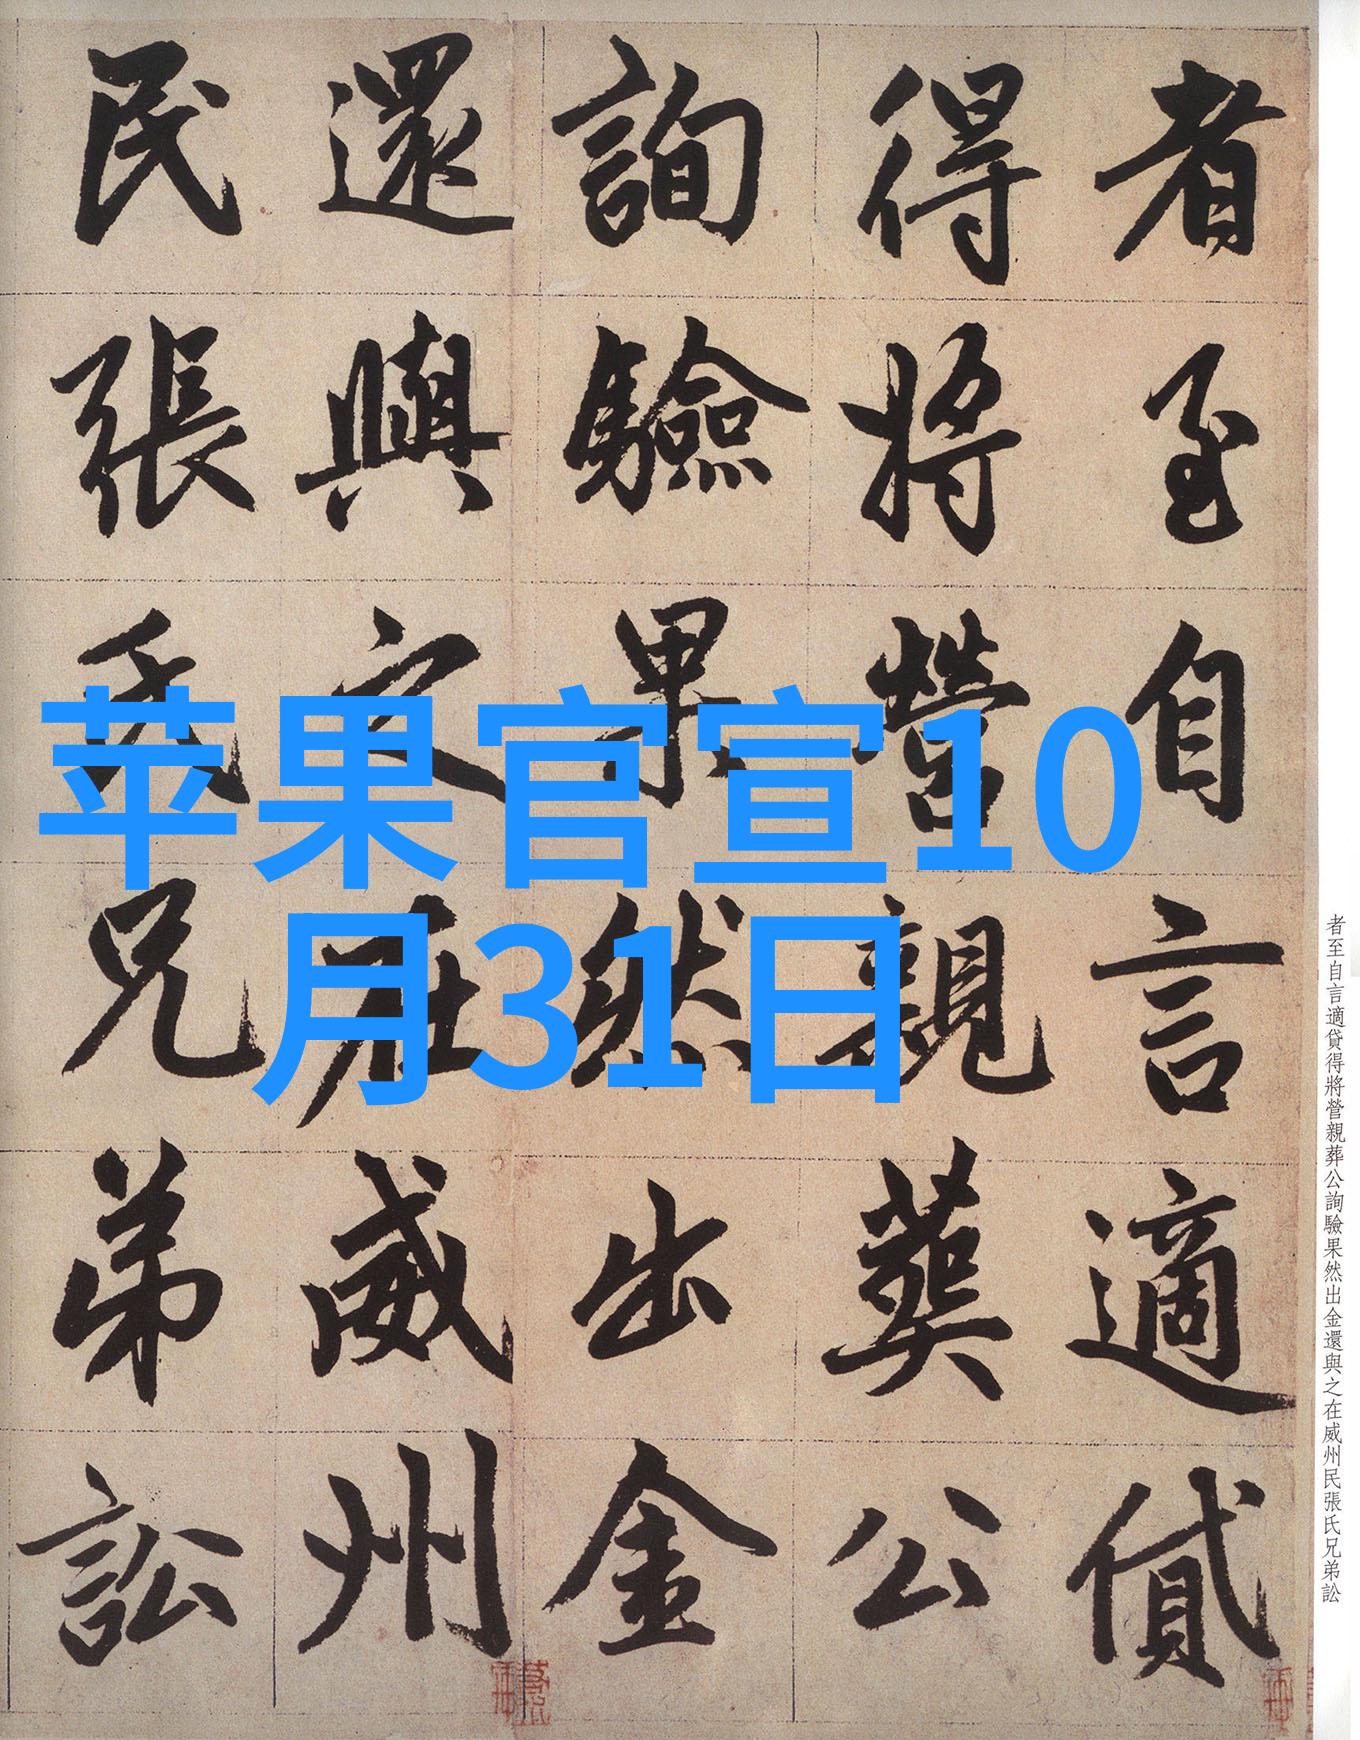 苹果官宣10
月31日
者至自言適貸
得將營親葬公
詢驗果然出金
還與之在威州
民張氏兄弟訟
者至自言適貸得將營親葬公詢驗果然出金還與之在威州民張氏兄弟訟